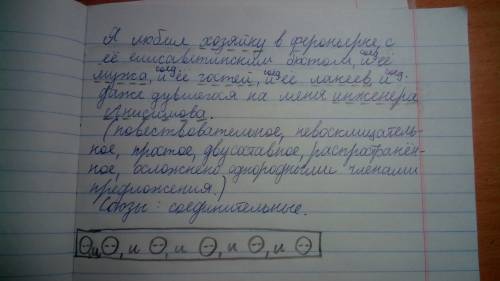 Я любил хозяйку в фероньерке, с
её елисаветинским бюстом, и её
мужа, и её гостей, и её лакеев, и
даже дувшегося на меня инженера
Анисимова.
(повествовательное, невосклицатель-
ное, простое, двусоставное, распространён-
ное, осложнено однородными членами
предложения.)
Союзы: соединительные.
и, и, и, и, и